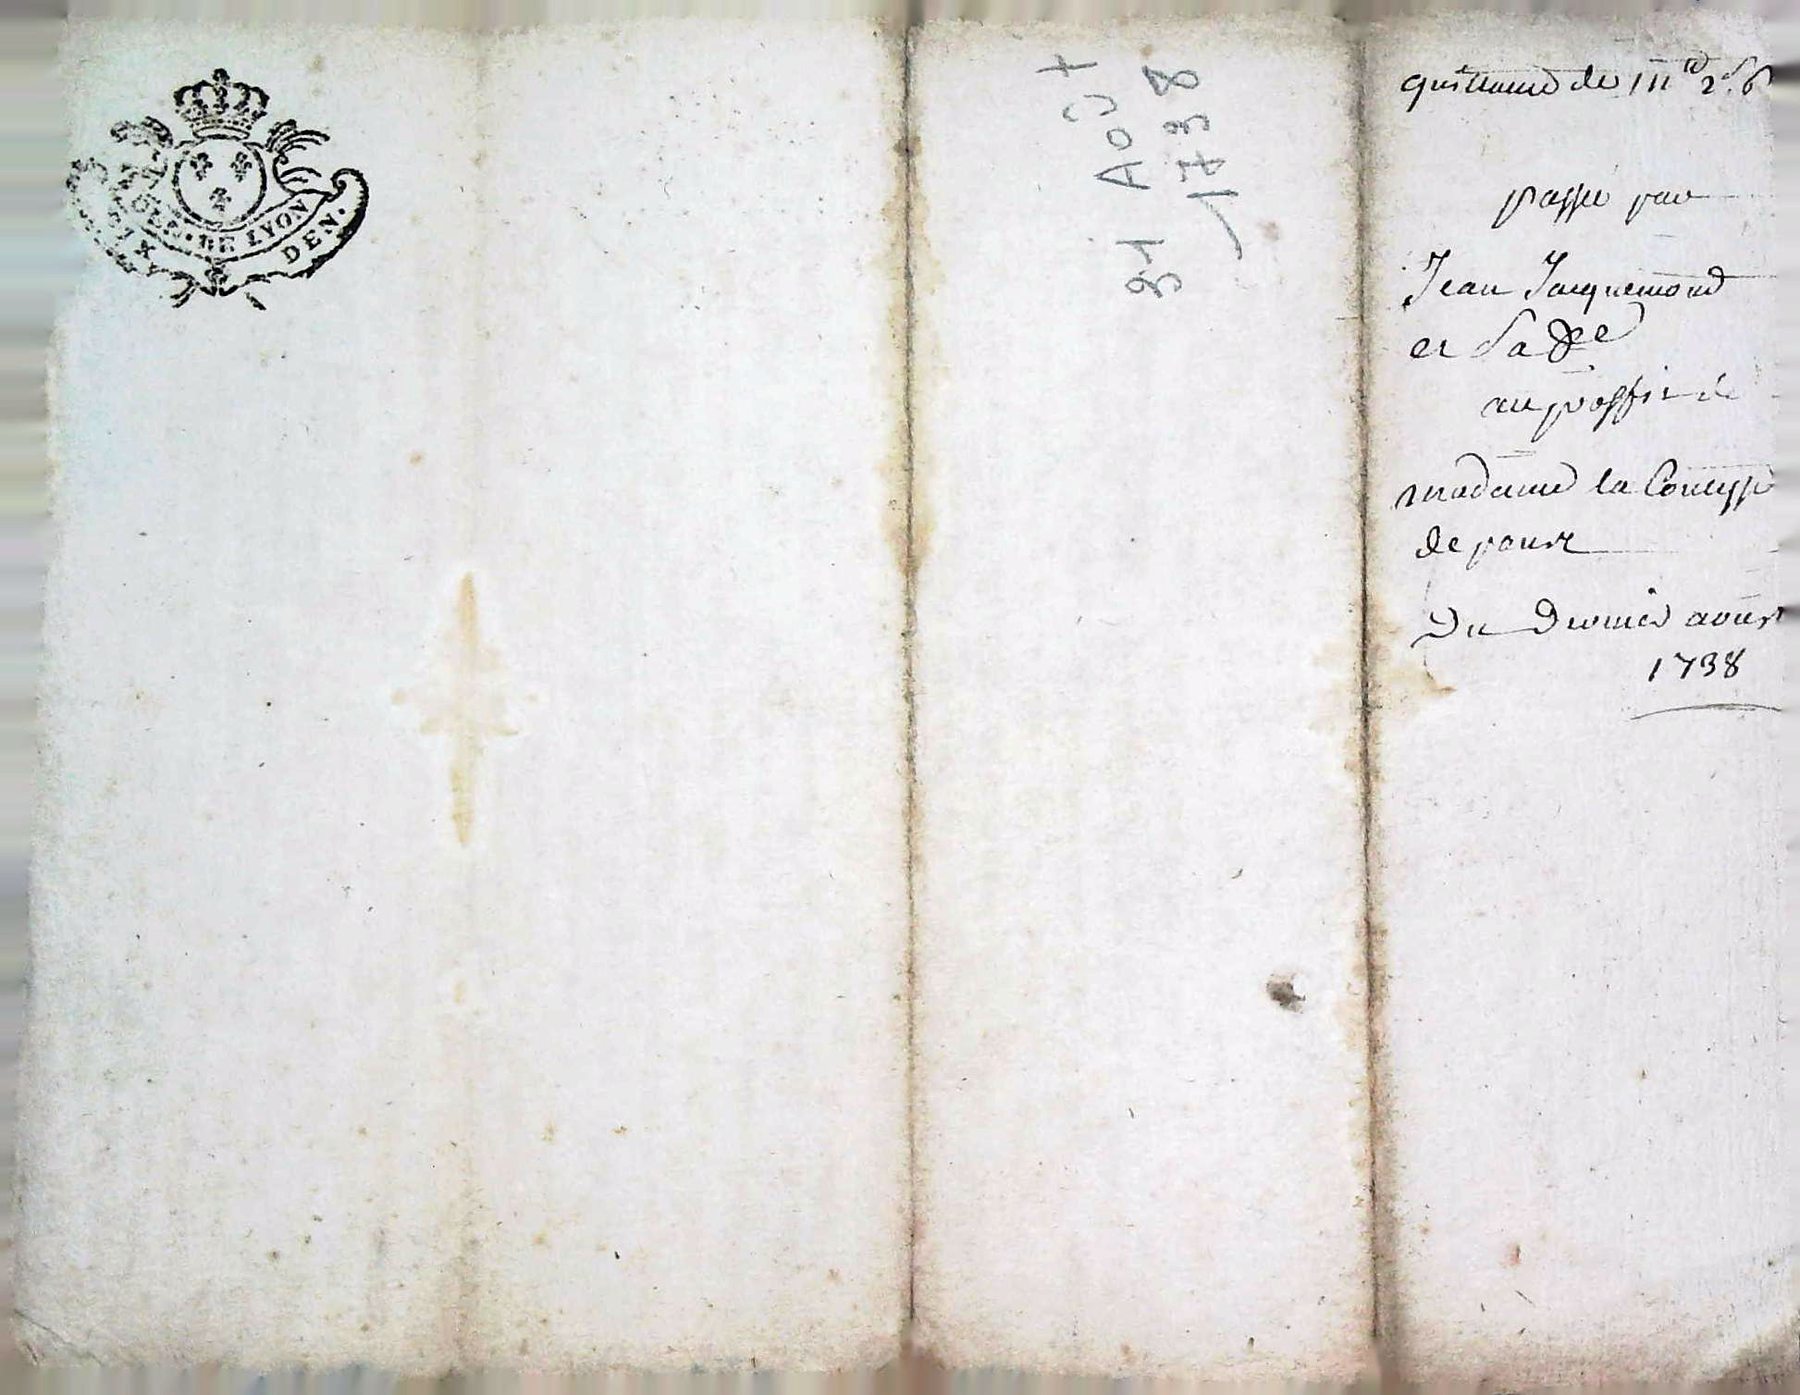 GEN. DE LYON
SIX DEN.
31 Août
1738
quittance de 111ᵗᵗ 2ˢ 6
passé par
Jean Jacquemond
et Sa
au proffit de
madame la Contesse
de
Du Dernier aoust
1738